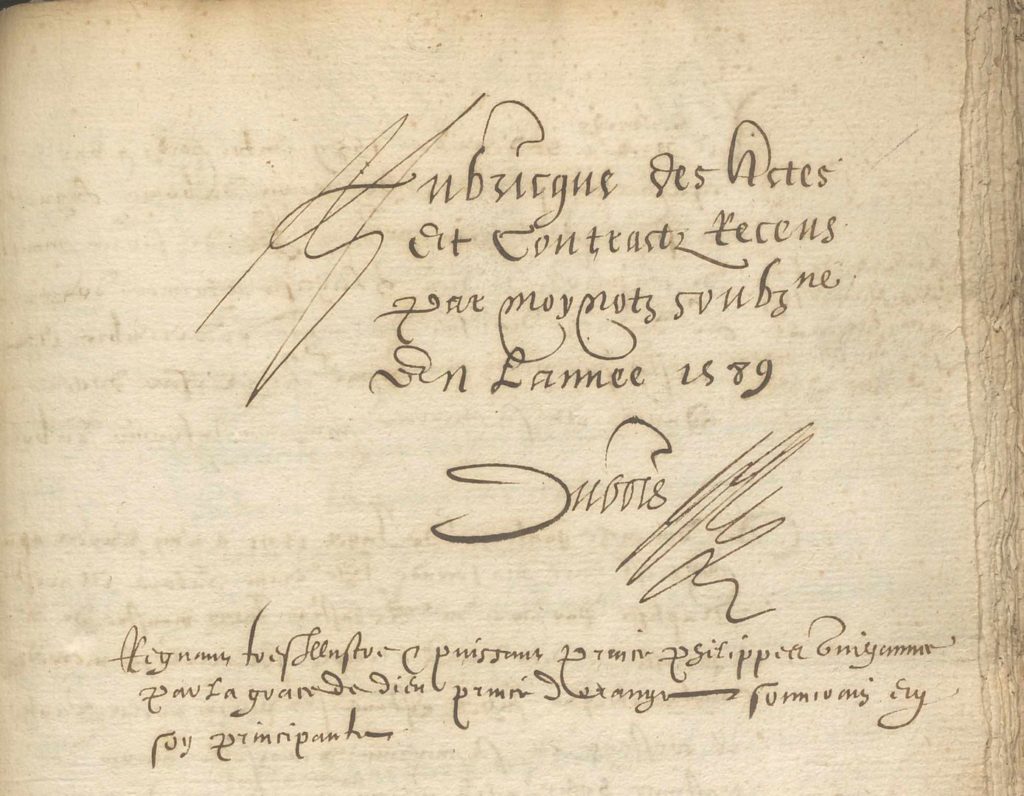 Rubricque des Actes
Et Contractz Receus
par moy notz soubzne
En Lannee 1589
Dubois
Regnant tresIllustre & puissant prince philippes Guigaume
par La grace de dieu prince dorange souverain en
soy principaulte